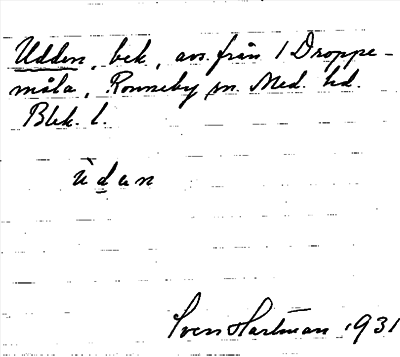 Udden, bek., avs. från 1 Droppe-
måla, Ronneby sn. Med. hd.
Blek. l.
ùdan
Sven Hartman 1931